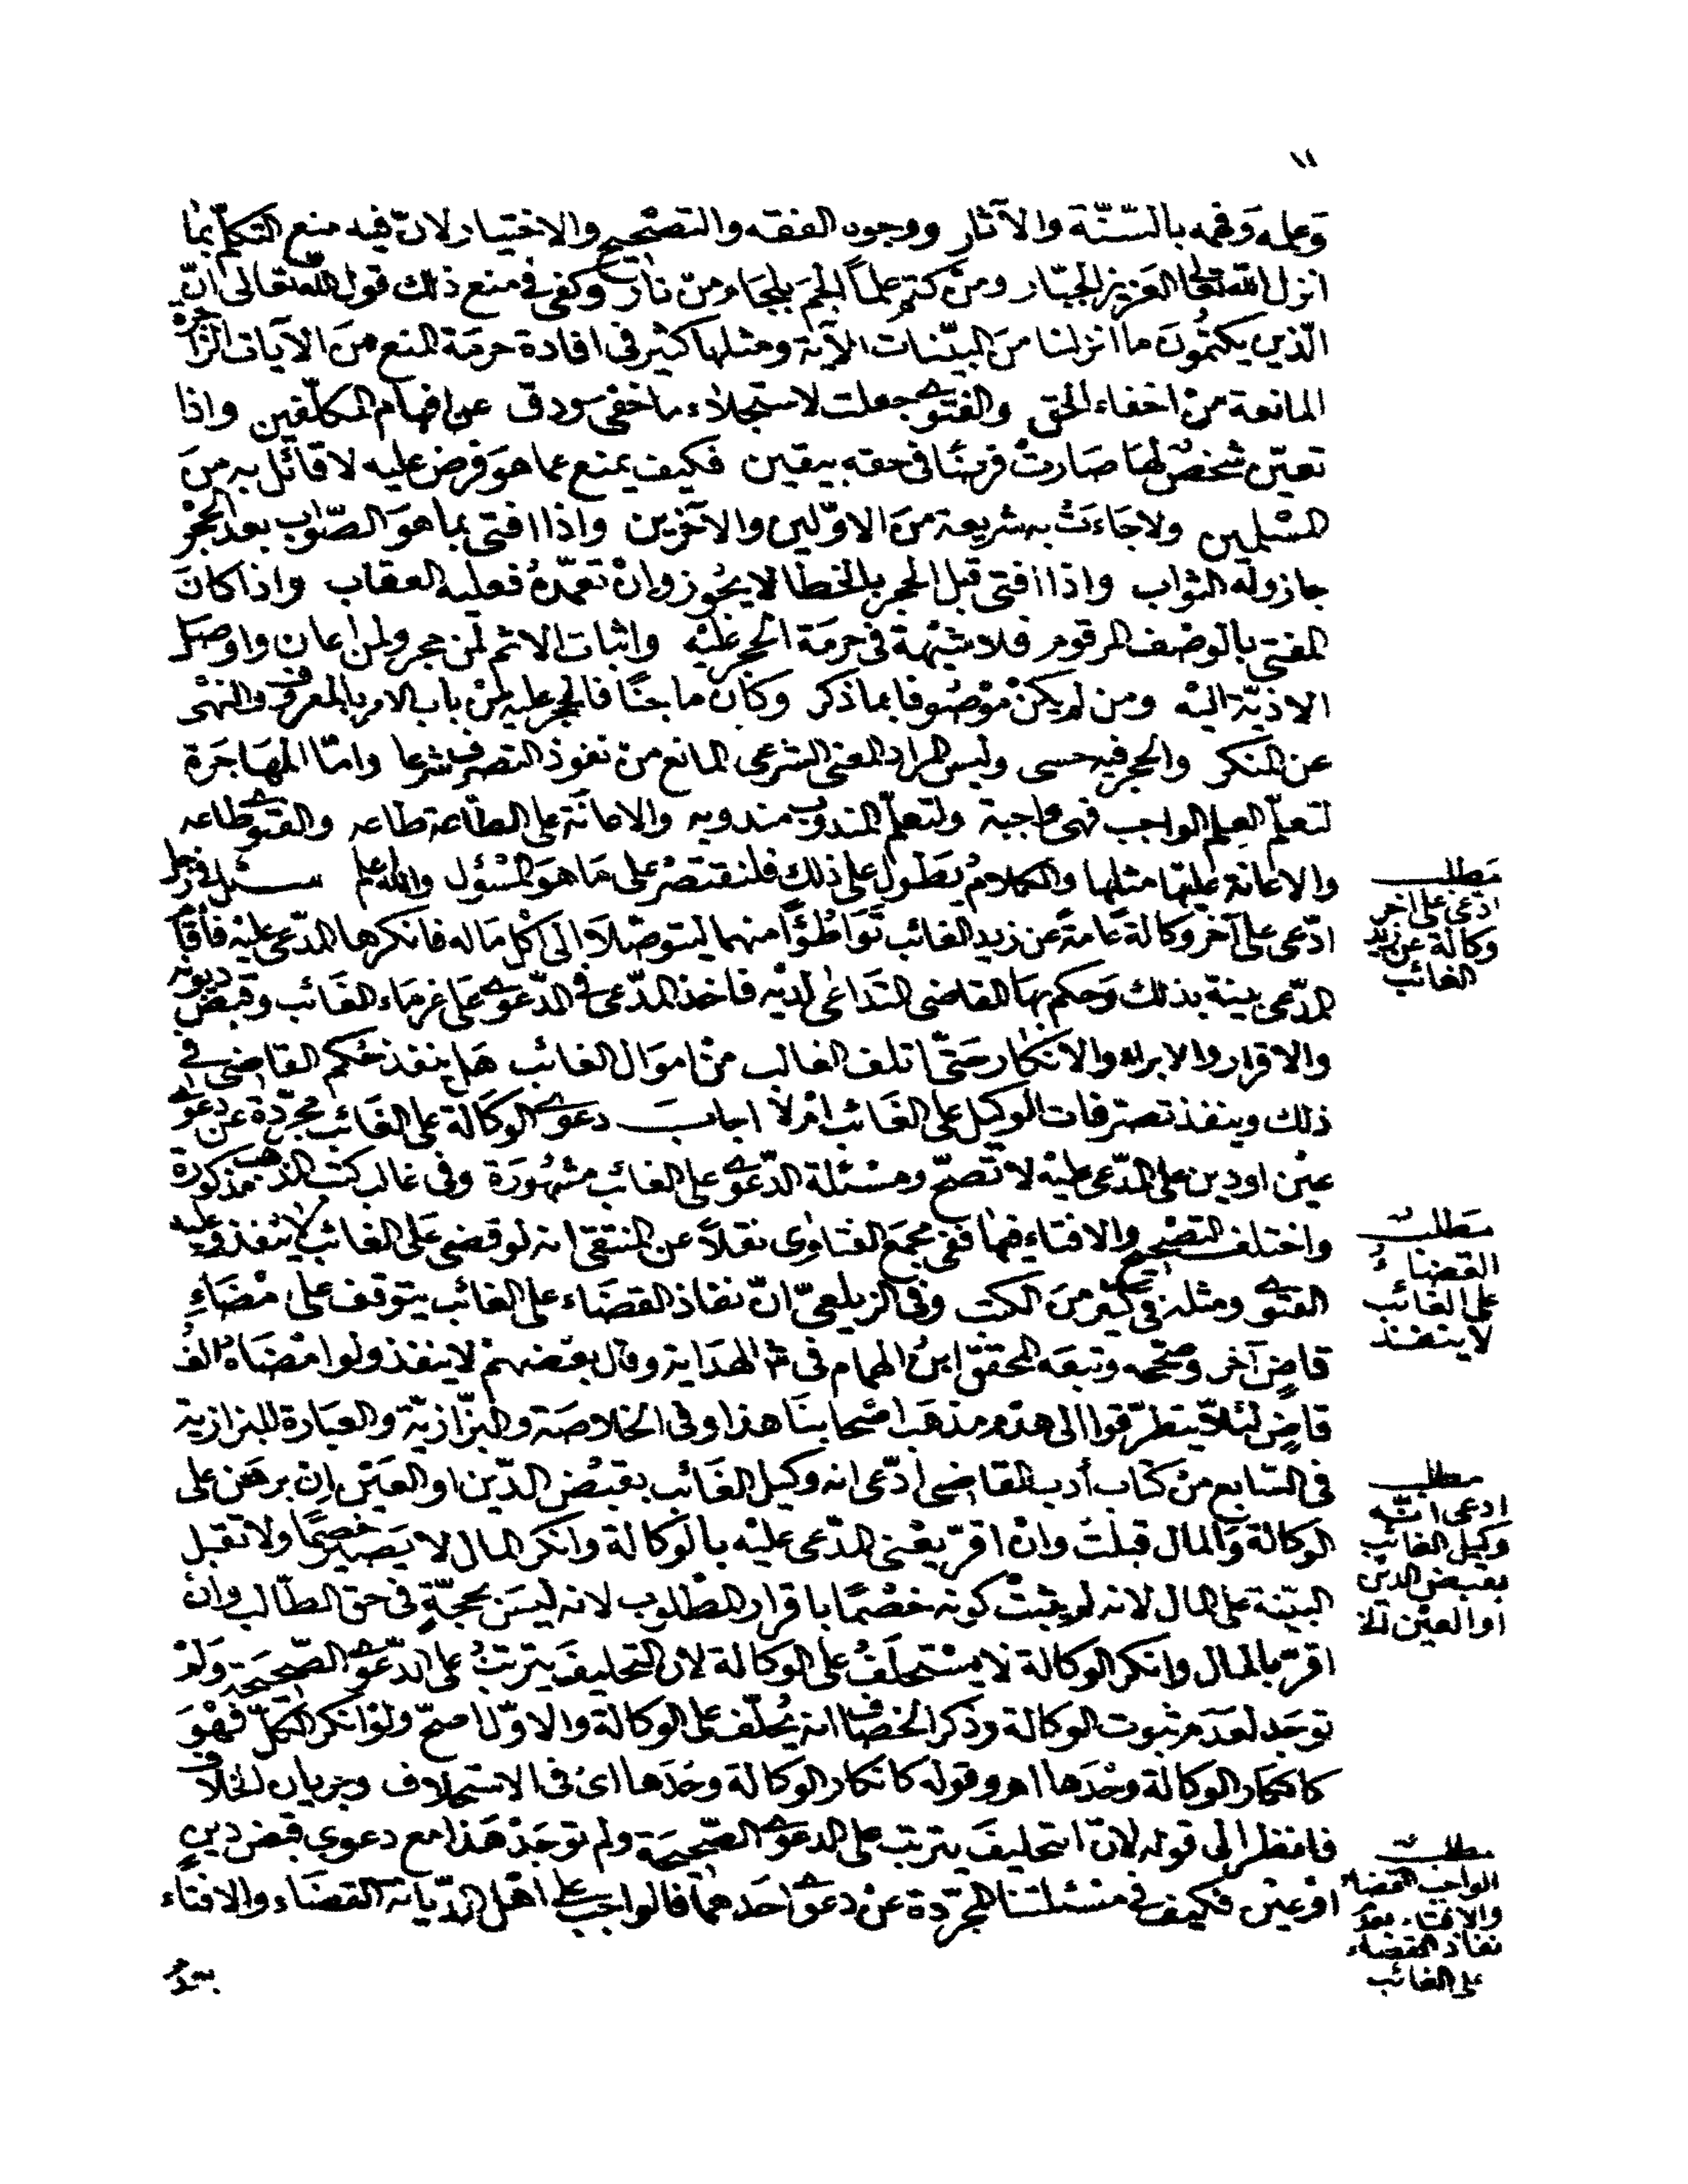 ١١
وعمله وفهمه بالسّنّة والآثار ووجوه الفقه والتصحيح والاختيار لانّ فيه منع التكلّم بما
انزل الله تعالى العزيز الجبّار ومن كتم علماً الجم بلجام من نار وكفى فى منع ذلك قول الله تعالى انّ
الّذين يكتمون ما انزلنا من البيّنات الآية ومثلها كثير فى افادة حرمة المنع من الآيات الزاجرة
المانعة من اخفاء الحق والفتوى جعلت لاستجلاء ما خفى ودق عن افهام المكلّفين واذا
تعيّن شخص لها صارت فرضًا فى حقه بيقين فكيف يمنع عما هو فرض عليه لا قائل به من
المسلمين ولا جاءت به شريعة من الاوّلين والآخرين واذا افتى بما هو الصّواب بعد الحجر
جاز وله الثواب واذا افتى قبل الحجر بالخطا لا يجوز وان تعمّده فعليه العقاب واذا كان
المفتى بالوصف المرقوم فلا شبهة فى حرمة الحجر عليه واثبات الاثم لمن حجر ولمن اعان واوصل
الاذيّة اليه ومن لم يكن موصوفا بما ذكر وكان ماجنًا فالحجر عليه من باب الامر بالمعروف والنهى
عن المنكر والحجر فيه حسى وليس المراد المعنى الشرعى المانع من نفوذ التصرف شرعا وامّا المهاجرة
لتعلّم العلم الواجب فهى واجبة ولتعلّم المندوب مندوبه والاعانة على الطّاعة طاعه والفتوى طاعه
والاعانة عليها مثلها والكلام يطول على ذلك فلنقتصر على ما هو المسؤل والله اعلم سئل فى رجل
ادّعى على آخر وكالة عامة عن زيد الغائب تواطؤًا منهما ليتوصّلا الى اكل ماله فانكرها المدّعى عليه فاقام
المدّعى بينة بذلك وحكم بها القاضى التداعى لديه فاخذ المدّعى فى الدّعوى على غرماء الغائب وقبض ديونه
والاقرار والابراء والانكار حتّى اتلف الغالب من اموال الغائب هل ينفذ حكم القاضى فى
ذلك وينفذ تصرفات الوكيل على الغائب ام لا اجاب دعوى الوكالة على الغائب مجرّدة عن دعوى
عين او دين على المدّعى عليه لا تصحّ ومسئلة الدّعوى على الغائب مشهورة وفى غالب كتب المذهب مذكورة
واختلف التصحيح والافتاء فيها ففى مجمع الفتاوى نقلاً عن المنتقى انه لو قضى على الغائب لا ينفذ وعليه
الفتوى ومثله فى كثير من الكتب وفى الزيلعىّ انّ نفاذ القضاء على الغائب يتوقف على امضاء
قاضٍ آخر وصحّحه وتبعه المحقق ابن الهمام فى شرح الهداية وقال بعضهم لا ينفذ ولو امضاه الف
قاضٍ لئلاّ يتطرّقوا الى هدم مذهب اصحابنا هذا وفى الخلاصة والبزّازيّة والعبارة للبزازية
فى السّابع من كتاب أدب القاضى ادّعى انه وكيل الغائب بقبض الدّين او العين ان برهن على
الوكالة والمال قبلت وان اقرّ يعنى المدّعى عليه بالوكالة وانكر المال لا يصير خصمًا ولا تقبل
البيّنة على المال لانه لم يثبت كونه خصمًا باقرار المطلوب لانه ليس بحجّةٍ فى حق الطّالب وان
اقرّ بالمال وانكر الوكالة لا يستحلف على الوكالة لان التحليف يترتب على الدّعوى الصّحيحة ولم
توجد لعدم ثبوت الوكالة وذكر الخصّاف انه يحلّف على الوكالة والاوّل اصحّ ولو انكر الكلّ فهو
كانكار الوكالة وحدها اهـ وقوله كانكار الوكالة وحدها اى فى الاستحلاف وجريان الخلاف
فانظر الى قوله لانّ التحليف يترتب على الدعوى الصّحيحة ولم توجد هذا مع دعوى قبض دين
او عين فكيف فى مسئلتنا المجرّدة عن دعوى احدهما فالواجب على اهل الدّيانة القضاء والافتاء
مطلب
ادعى على اخر
وكالة عن زيد
الغائب
مطلب
القضاء
على الغائب
لا ينفذ
مطلب
ادعى انّه
وكيل الغائب
بقبض الدين
او العين الخ
مطلب
الواجب القضاء
والافتاء بعدم
نفاذ القضاء
على الغائب